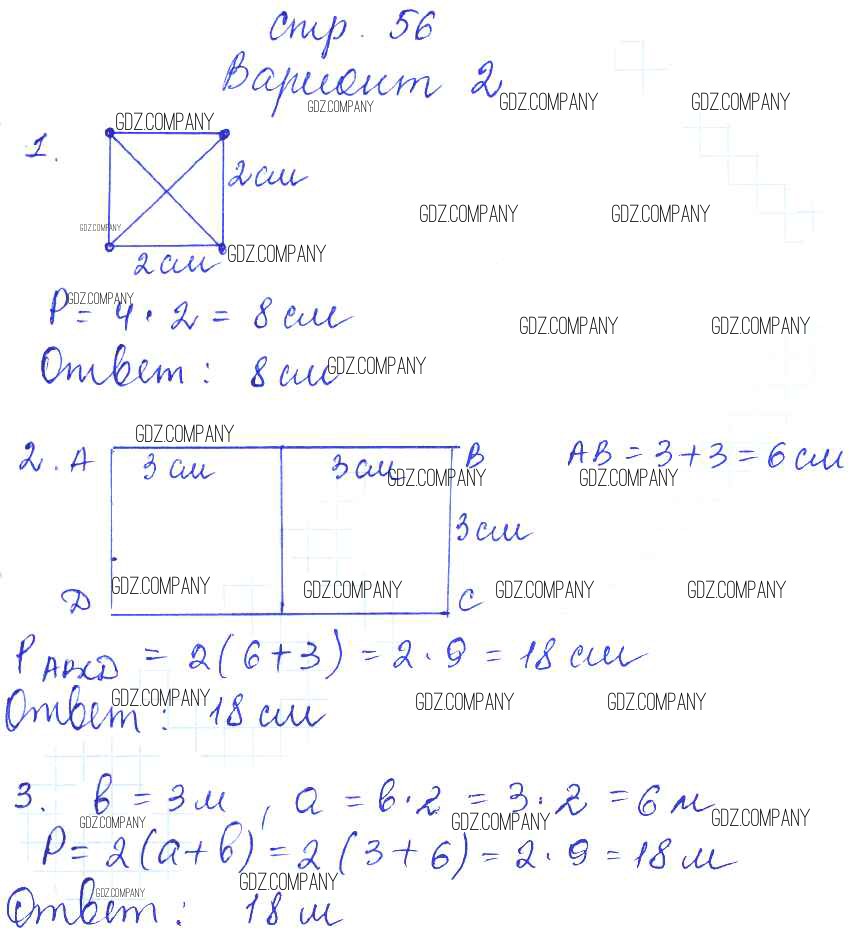 стр. 56
Вариант 2
GDZ.COMPANY GDZ.COMPANY GDZ.COMPANY
GDZ.COMPANY
1.
2 см
GDZ.COMPANY GDZ.COMPANY
GDZ.COMPANY
GDZ.COMPANY
2 см
GDZ.COMPANY
P = 4 · 2 = 8 см
GDZ.COMPANY GDZ.COMPANY
Ответ : 8 см
GDZ.COMPANY
GDZ.COMPANY
2. A 3 см 3 см B AB = 3 + 3 = 6 см
GDZ.COMPANY GDZ.COMPANY
3 см
GDZ.COMPANY GDZ.COMPANY GDZ.COMPANY GDZ.COMPANY
D C
P ABCD = 2 ( 6 + 3 ) = 2 · 9 = 18 см
GDZ.COMPANY GDZ.COMPANY GDZ.COMPANY
Ответ : 18 см
3. в = 3 м , а = в · 2 = 3 · 2 = 6 м
GDZ.COMPANY GDZ.COMPANY GDZ.COMPANY
P = 2 ( а + в ) = 2 ( 3 + 6 ) = 2 · 9 = 18 м
GDZ.COMPANY GDZ.COMPANY
Ответ : 18 м